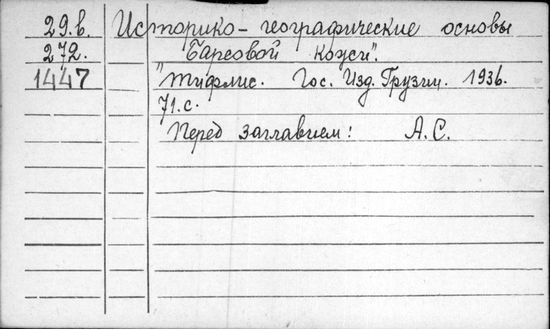 29.в. Историко-географические основы
272. "Барсовой кожи".
1447 Тифлис. Гос. Изд. Грузии. 1936.
71.с.
Перед заглавием: А.С.